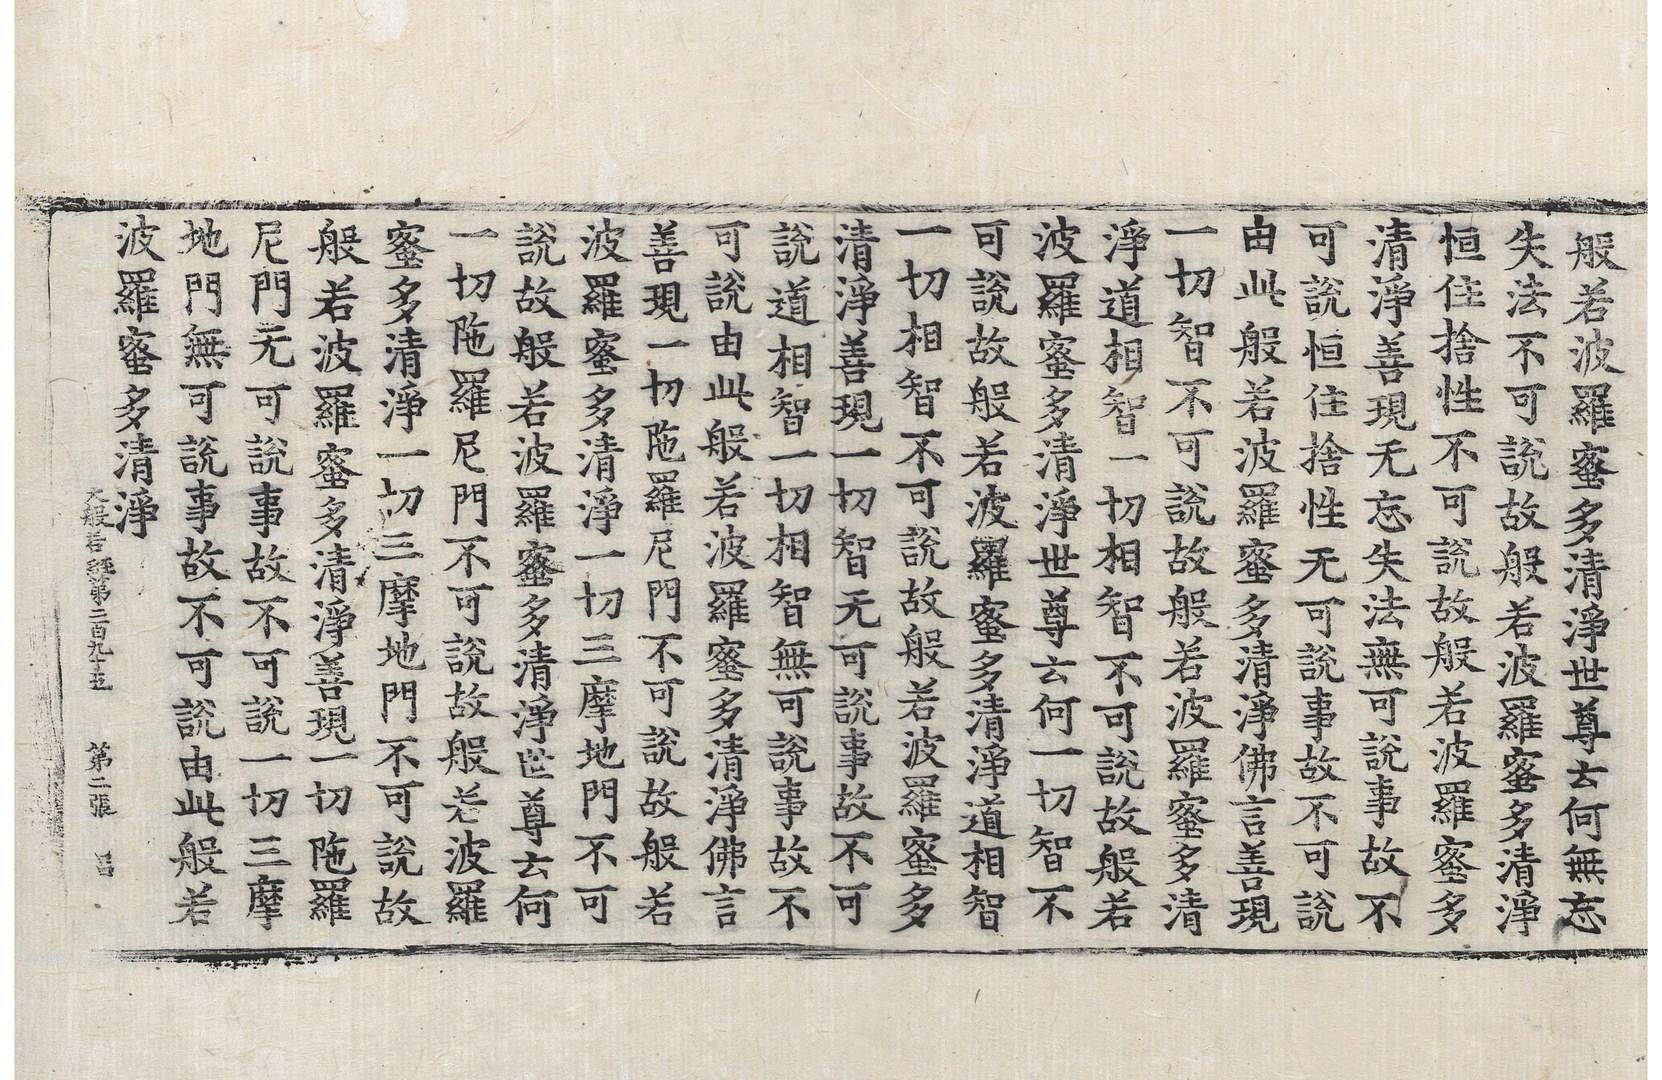 般若波羅蜜多清淨世尊云何無忘
失法不可說故般若波羅蜜多清淨
恒住捨性不可說故般若波羅蜜多
清淨善現无忘失法無可說事故不
可說恒住捨性无可說事故不可說
由此般若波羅蜜多清淨佛言善現
一切智不可說故般若波羅蜜多清
淨道相智一切相智不可說故般若
波羅蜜多清淨世尊云何一切智不
可說故般若波羅蜜多清淨道相智
一切相智不可說故般若波羅蜜多
清淨善現一切智无可說事故不可
說道相智一切相智無可說事故不
可說由此般若波羅蜜多清淨佛言
善現一切陁羅尼門不可說故般若
波羅蜜多清淨一切三摩地門不可
說故般若波羅蜜多清淨世尊云何
一切陁羅尼門不可說故般若波羅
蜜多清淨一切三摩地門不可說故
般若波羅蜜多清淨善現一切陁羅
尼門无可說事故不可說一切三摩
地門無可說事故不可說由此般若
波羅蜜多清淨
大般若經第二百九十五 第二張